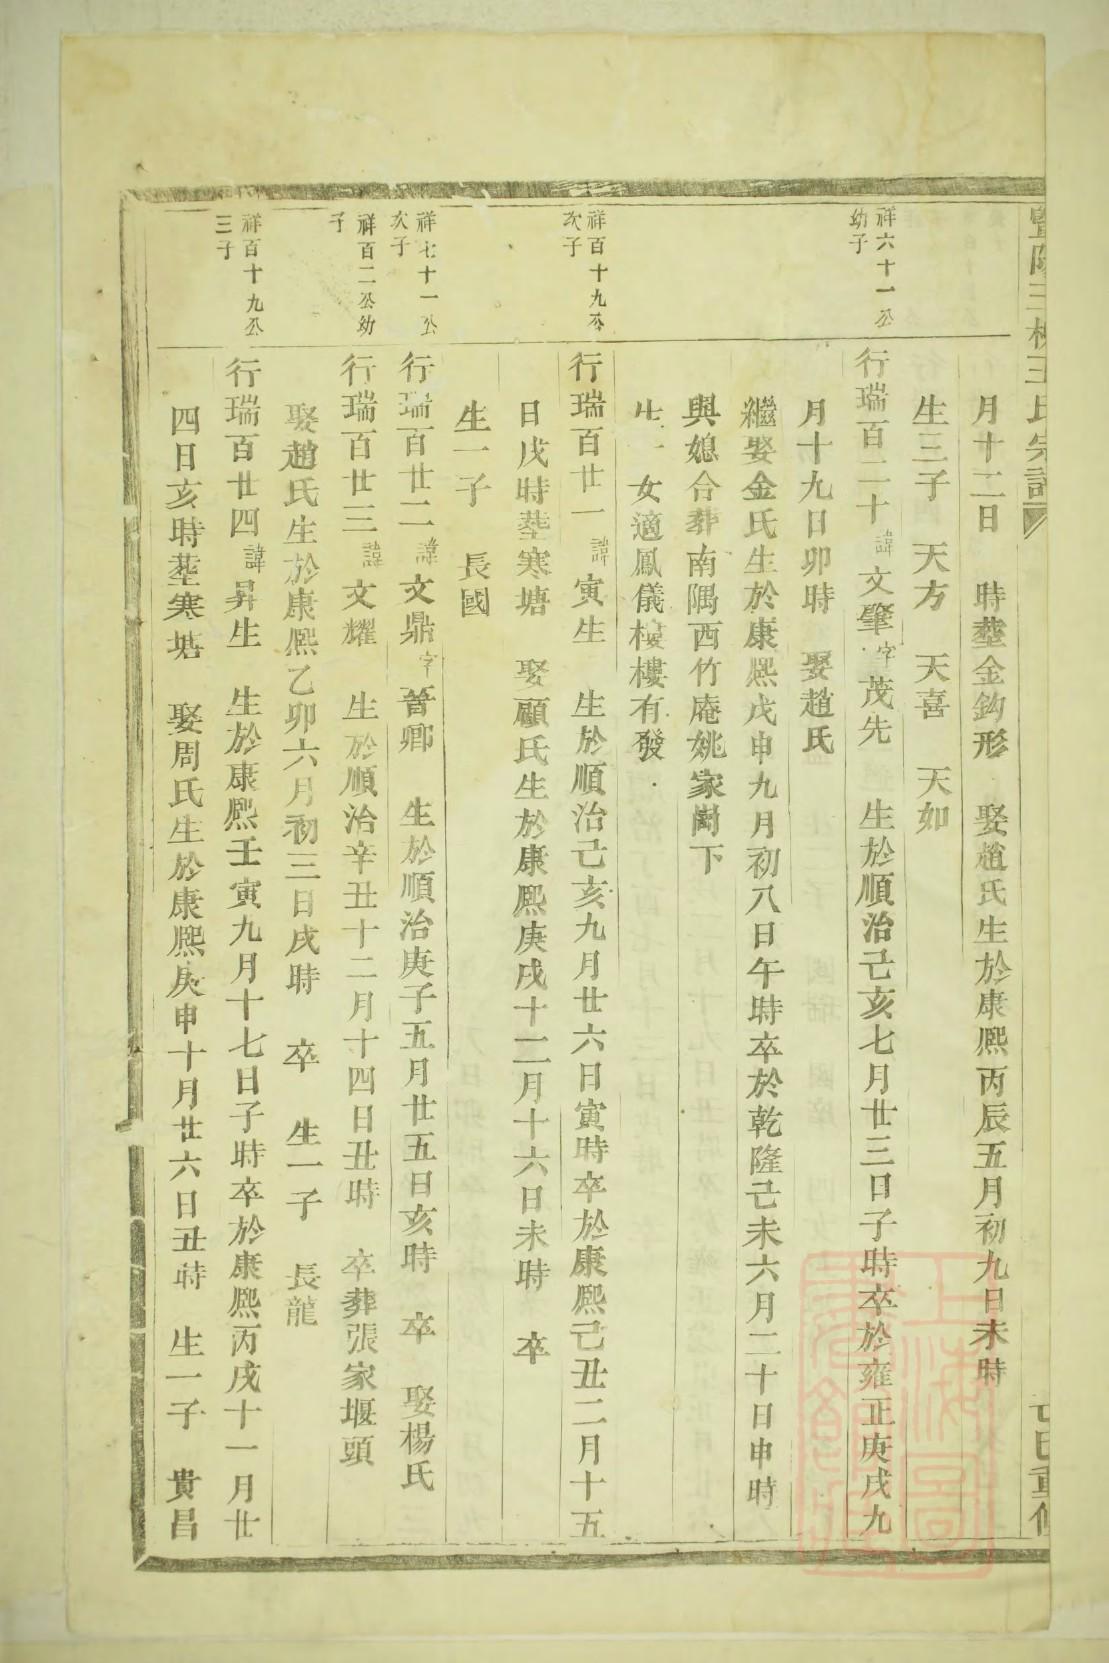 暨陽三枝王氏宗譜
月十二日　時塟金鈎形　娶趙氏生於康熙丙辰五月初九日未時
生三子　天方　天喜　天如
祥六十一公幼子
行瑞百二十諱文肇字茂先　生於順治己亥七月廿三日子時卒於雍正庚戌九
月十九日卯時　娶趙氏
繼娶金氏生於康熙戊申九月初八日午時卒於乾隆己未六月二十日申時
與媳合葬南隅西竹庵姚家崗下
生一女適鳳儀樓樓有發
祥百十九公次子
行瑞百廿一諱寅生　生於順治己亥九月廿六日寅時卒於康熙己丑二月十五
日戌時塟寒塘　娶顧氏生於康熙庚戌十二月十六日未時　卒
生一子　長國
祥七十一公次子
行瑞百廿二諱文鼎字晉卿　生於順治庚子五月廿五日亥時　卒　娶楊氏
祥百二公幼子
行瑞百廿三諱文耀　生於順治辛丑十二月十四日丑時　卒葬張家堰頭
娶趙氏生於康熙乙卯六月初三日戌時　卒　生一子　長龍
祥百十九公三子
行瑞百廿四諱昇生　生於康熙壬寅九月十七日子時卒於康熙丙戌十一月廿
四日亥時塟寒塘　娶周氏生於康熙庚申十月廿六日丑時　生一子　貴昌